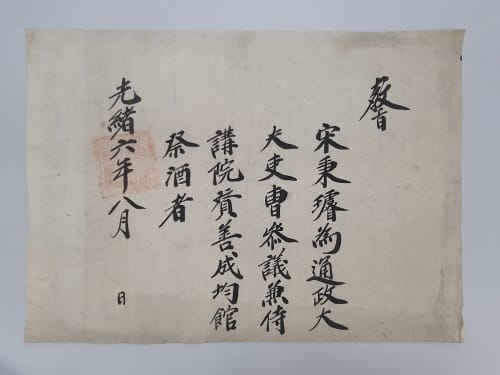 敎旨
宋秉璿為通政大
夫吏曹叅議兼侍
講院贊善成均館
祭酒者
光緒六年八月 日